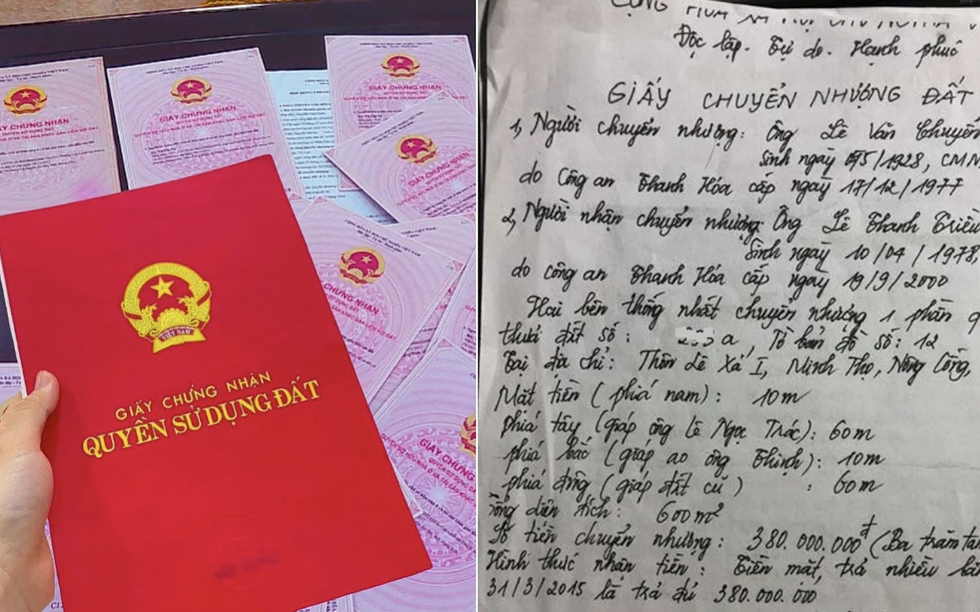 GIẤY CHỨNG NHẬN
GIẤY CHỨNG NHẬN
QUYỀN SỬ DỤNG ĐẤT
GIẤY CHỨNG NHẬN
GIẤY CHỨNG NHẬN
GIẤY CHỨNG NHẬN
GIẤY CHỨNG
VIỆT NAM
GIẤY CHỨNG NHẬN
QUYỀN SỬ DỤNG ĐẤT
Độc lập. Tự do. Hạnh phúc
GIẤY CHUYỂN NHƯỢNG ĐẤT
1, Người chuyển nhượng: Ông Lê Văn Thuyên
Sinh ngày /5/1928, CMN
do Công an Thanh Hóa cấp ngày 17/12/1977
2, Người nhận chuyển nhượng: Ông Lê Thanh Triều
Sinh ngày 10/04/1978,
do công an Thanh Hóa cấp ngày 19/9/2000
Hai bên thống nhất chuyển nhượng 1 phần
thửa đất số: a, Tờ bản đồ số: 12
Tại địa chỉ: Thôn Lê Xá I, Minh Thọ, Nông Cống,
Mặt tiền (phía nam): 10m
phía tây (giáp ông Lê Ngọc Trác): 60m
phía bắc (giáp ao ông Thinh): 10m
phía đông (giáp đất cũ): 60m
Tổng diện tích: 600m²
Số tiền chuyển nhượng: 380.000.000đ (Ba trăm tá
Hình thức nhận tiền: Tiền mặt, trả nhiều lầ
31/3/2015 là trả đủ 380.000.000